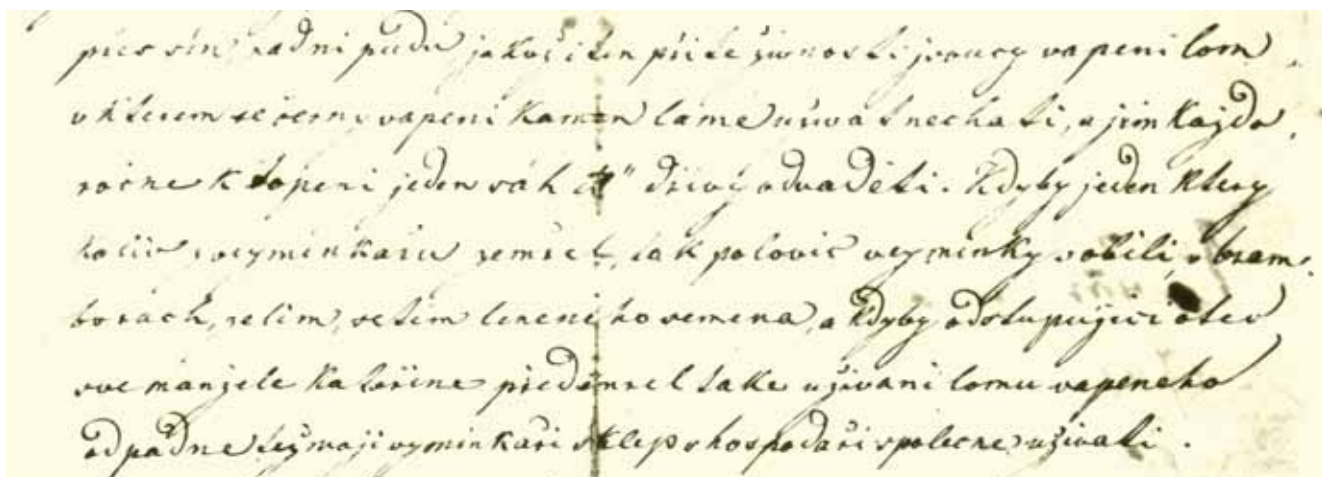 přes síň, zadní půdu jakož i ten při té živnosti jsoucy vapení lom,
v kterem se černy vapeni kamen láme užívat nechati, a jim každo,
ročne k topeni jeden sáh 4" dříví odvaděti. Kdyby jeden ktery
koliv z veyminkařu zemřel, tak polovic veyminky v obilí, v bram-
borach, zelim, setim lneniho semena, a kdyby odstupujíci otec
sve manžele Kateřine předemrel take užívaní lomu vapeneho
odpadne též maji vyminkaři sklep s hospodaři společne užívati.